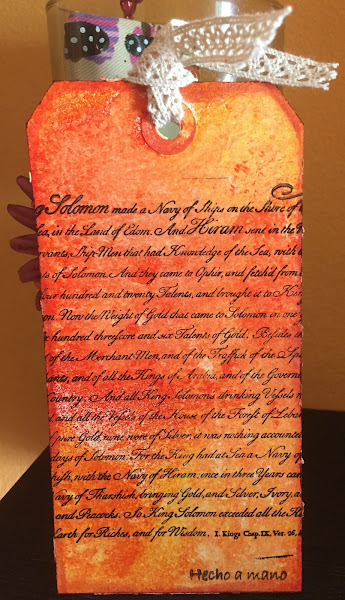 g Solomon made a Navy of Ships on the Shore of
Sea, in the Land of Edom. And Hiram sent in the N
rvants, Ship-Men that had Knowledge of the Sea, with
s of Solomon. And they came to Ophir, and fetch'd from
our hundred and twenty Talents, and brought it to K
on. Now the Weight of Gold that came to Solomon in one
e hundred threescore and six Talents of Gold. Besides
of the Merchant-Men, and of the Traffick of the Sp
ants, and of all the Kings of Arabia, and of the Governo
Country. And all King Solomons drinking Vessels
d and all the Vessels of the House of the Forest of Leban
pure Gold, none were of Silver, it was nothing accounted
days of Solomon. For the King had at Sea a Navy of
hish, with the Navy of Hiram; once in three Years ca
avy of Tharshish, bringing Gold, and Silver, Ivory, a
and Peacocks. So King Solomon exceeded all the K
Earth for Riches, and for Wisdom. I. Kings Chap. IX, Ver. 26,
Hecho a mano